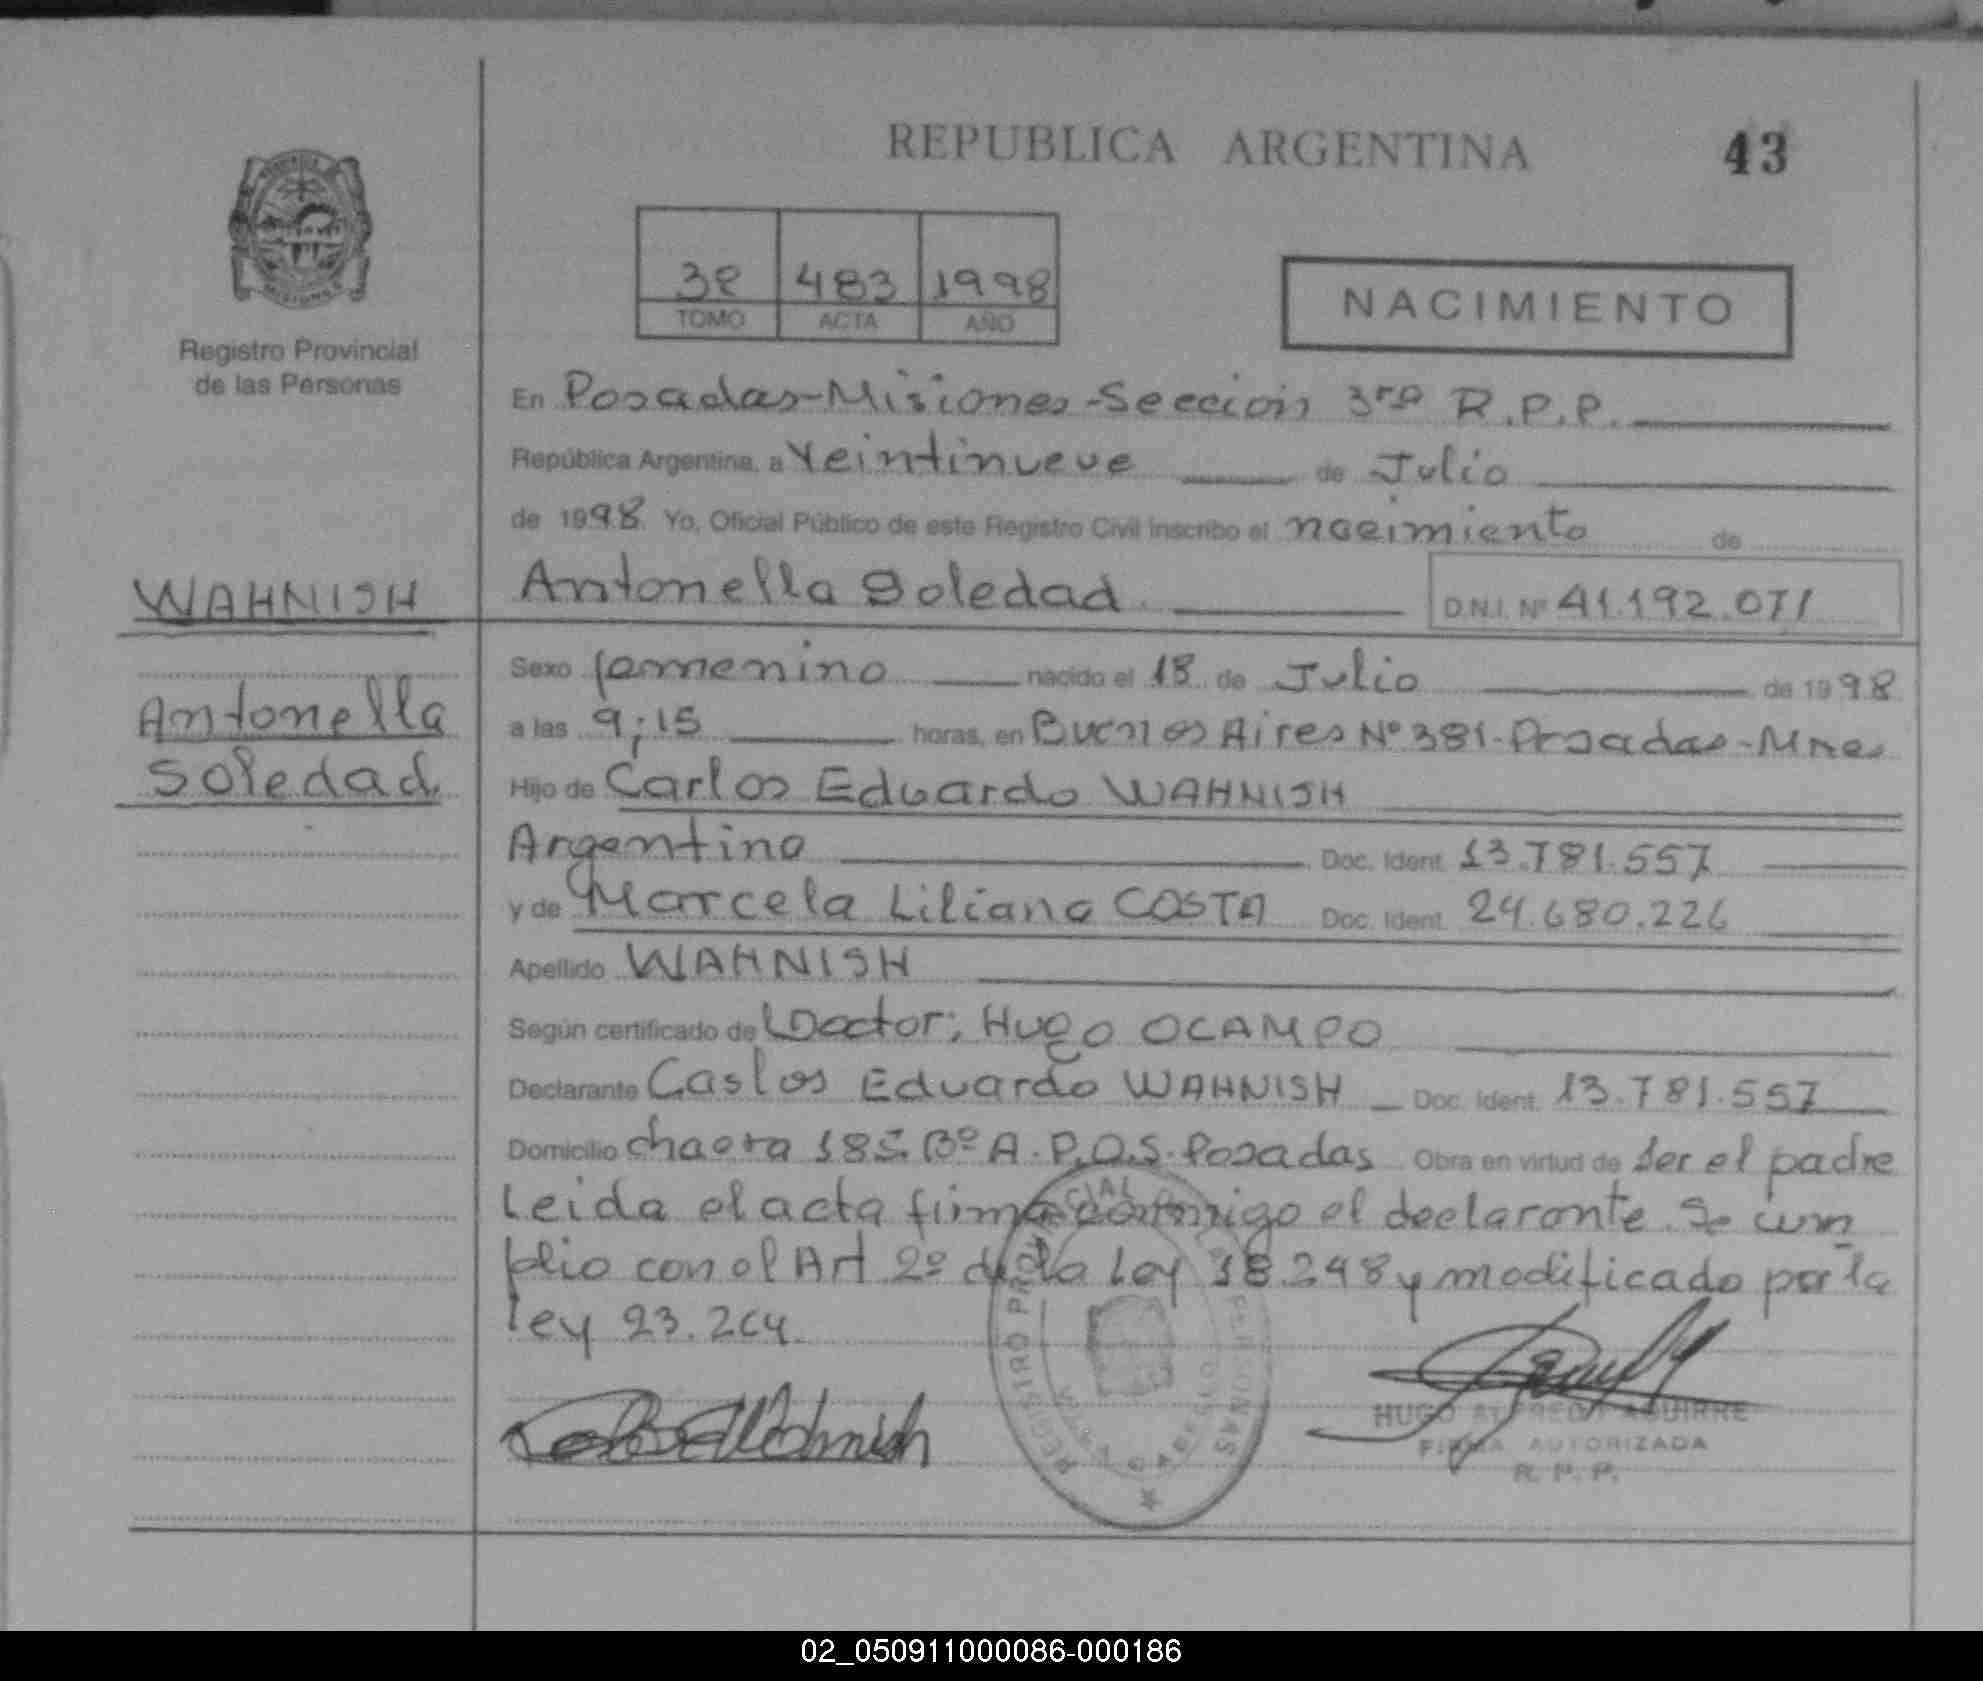 REPUBLICA ARGENTINA 43
Registro Provincial
de las Personas
483 1998
TOMO ACTA AÑO
NACIMIENTO
En Posadas-Misiones-Seccion 3ra R.P.P.
República Argentina, a Veintinueve de Julio
de 1998. Yo, Oficial Público de este Registro Civil inscribo el nacimiento de
WAHNISH
Antonella Soledad D.N.I. Nº 41.192.071
Antonella
Soledad
Sexo femenino nacido el 18 de Julio de 1998
a las 9;15 horas, en Buenos Aires Nº 381-Posadas-Mnes
Hijo de Carlos Eduardo WAHNISH
Argentina Doc. Ident. 13.781.557
y de Marcela Liliana COSTA Doc. Ident. 24.680.226
Apellido WAHNISH
Según certificado de Doctor; Hugo OCAMPO
Declarante Carlos Eduardo WAHNISH Doc. Ident. 13.781.557
Domicilio chacra Bº A.P.O.S. Posadas Obra en virtud de ser el padre
Leida el acta firma conmigo el declarante. Se cum
plio con el Art 2º de la Ley 18.248 y modificado por la
ley 23.264.
REGISTRO PROVINCIAL DE LAS PERSONAS
HUGO ALFREDO AGUIRRE
FIRMA AUTORIZADA
R. P. P.
02_050911000086-000186